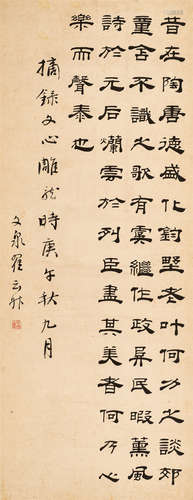 昔在陶盛化鈞野老叶何力之談郊
童含不識之歌有虞繼作政阜民暇薰風
詩於元后爛雲於列臣盡其美者何乃心
樂而聲泰也
摘錄文心雕龍時庚午秋九月
文泉翟云升